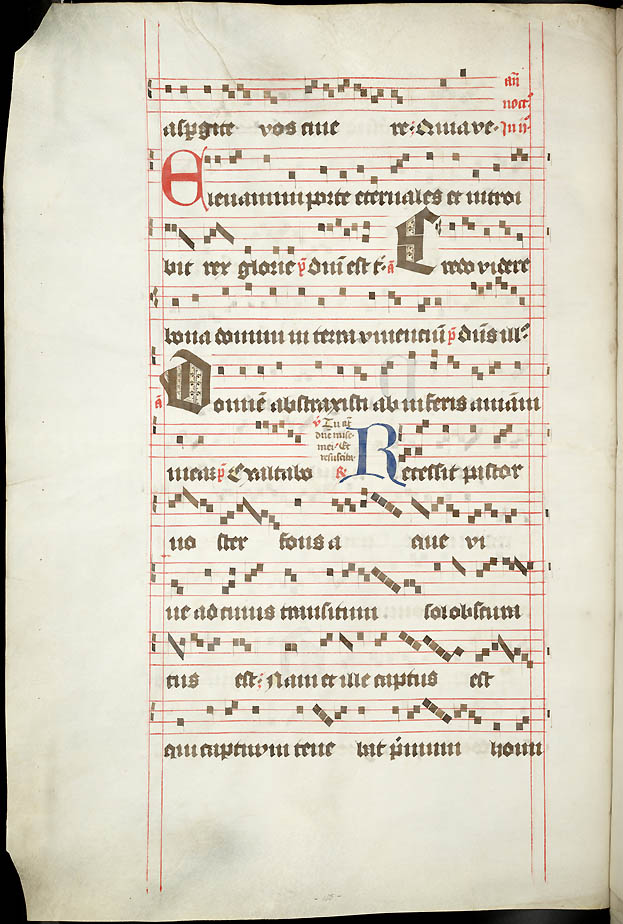 aspgite vos cine re: Quia ve. In ii°
noct°
añ
Elevamini porte eternales et introi
bit rex glorie p̄ Dñi est t̄. a Credo videre
bona domini in terra viventiū p̄ Dñs ill°
a Domine abstraxisti ab inferis animā
meam p̄ Exaltabo
℣ Tu aūt
dñe mise
mei. Et
resuscita.
℟ Recessit pastor
no ster fons a que vi
ve ad cuius transitum sol obscura
tus est: Nam et ille captus est
qui captivum tene bat p̄mum homi